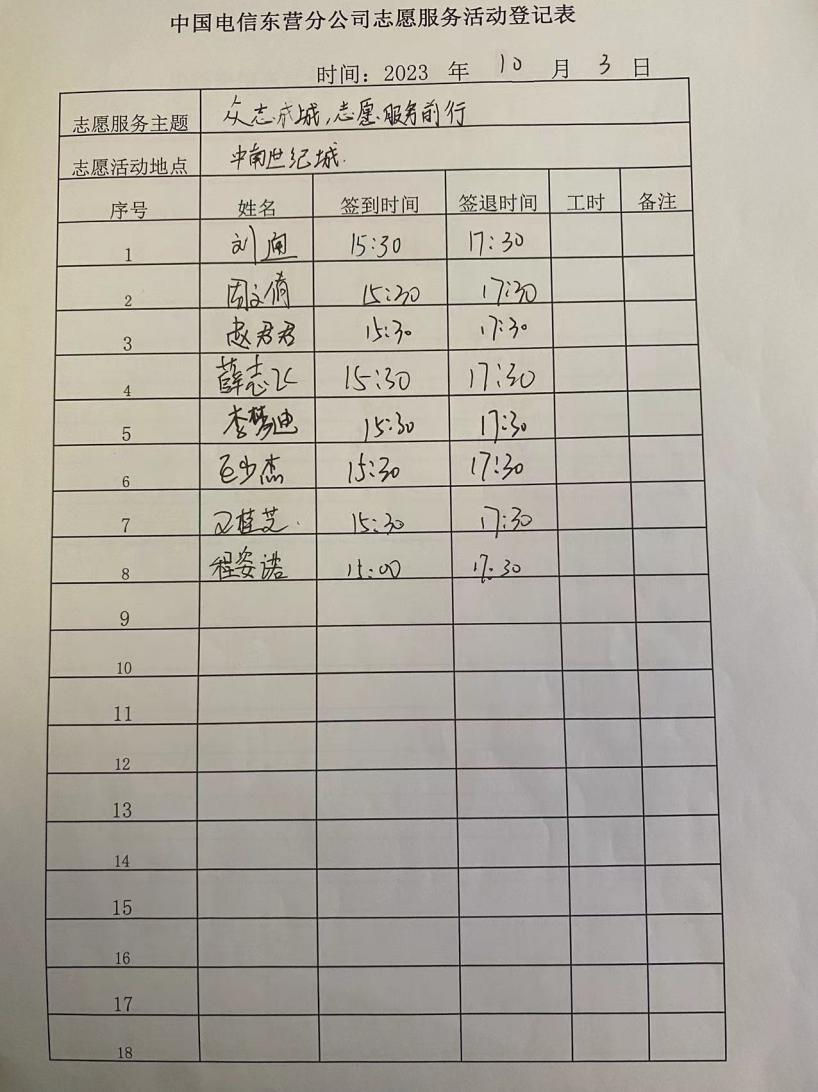 中国电信东营分公司志愿服务活动登记表
时间：2023 年 10 月 3 日
志愿服务主题 众志成城，志愿服务前行
志愿活动地点 中南世纪城.
序号 姓名 签到时间 签退时间 工时 备注
1 刘 15:30 17:30
2 周文倩 15:30 17:30
3 赵君君 15:30 17:30
4 薛志 15:30 17:30
5 李梦迪 15:30 17:30
6 少杰 15:30 17:30
7 桂芝. 15:30 17:30
8 程姿诺 15:00 17:30
9
10
11
12
13
14
15
16
17
18